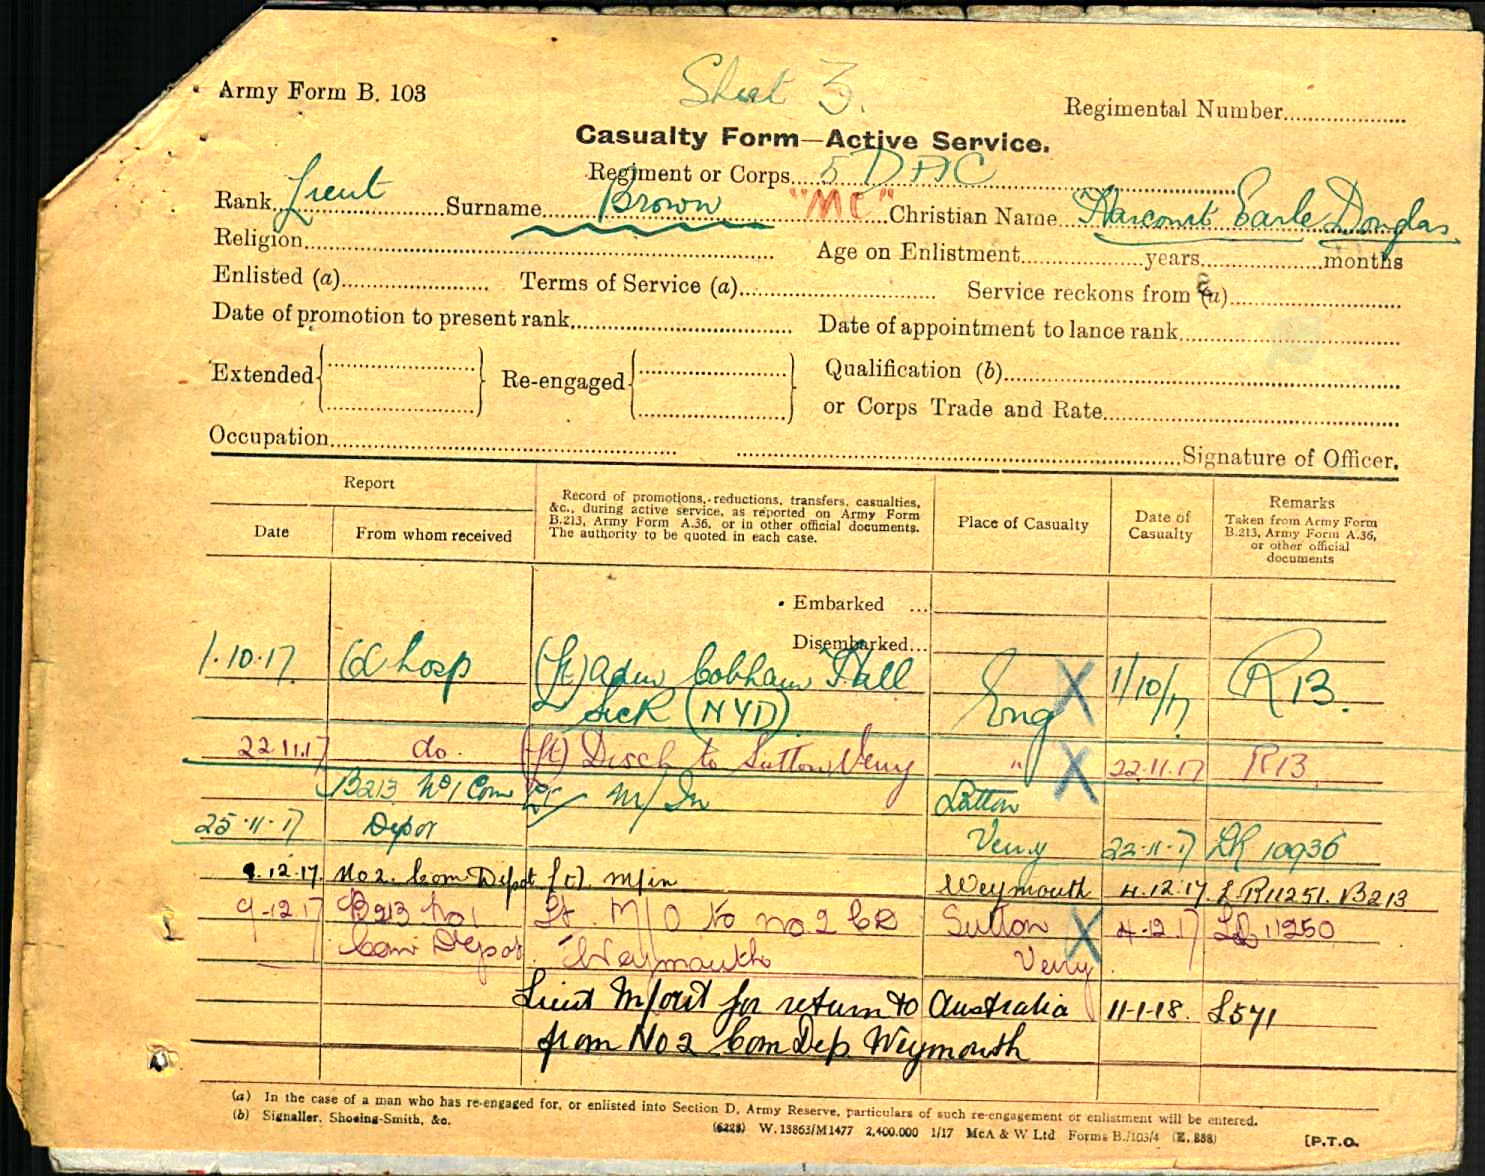 Sheet 3.
Army Form B. 103
Regimental Number
Casualty Form—Active Service.
Regiment or Corps 5 DAC
Rank Lieut Surname Brown "MC" Christian Name Harcourt Earle Douglas
Religion Age on Enlistment years months
Enlisted (a) Terms of Service (a) Service reckons from (a)
Date of promotion to present rank Date of appointment to lance rank
Extended Re-engaged Qualification (b)
or Corps Trade and Rate
Occupation Signature of Officer.
Report
Date From whom received
Record of promotions, reductions, transfers, casualties,
&c., during active service, as reported on Army Form
B.213, Army Form A.36, or in other official documents.
The authority to be quoted in each case.
Place of Casualty
Date of
Casualty
Remarks
Taken from Army Form
B.213, Army Form A.36,
or other official
documents
Embarked ...
Disembarked...
1.10.17 hosp (Lt) Cobham Hall 1/10/17 R13.
Sick (NYD) Eng
22.11.17 do. (Lt) Disch to Sutton Veny " 22.11.17 R13
B213 No 1 Com M/In Sutton
25.11.17 Depot Veny 22.11.17 LR 10936
9.12.17. No 2. Com Depot (Lt). M/in Weymouth 4.12.17. LR11251. B213
9-12.17 B213 No 1 Lt. M/O to No. 2 CD Sutton 4.12.17 11250
Com Depot Weymouth Veny.
Lieut M/out for return to Australia 11-1-18. L571
from No 2 Com Dep Weymouth
(a) In the case of a man who has re-engaged for, or enlisted into Section D, Army Reserve, particulars of such re-engagement or enlistment will be entered.
(b) Signaller, Shoeing-Smith, &c.
(6228) W.13863/M1477 2,400,000 1/17 McA & W Ltd Forms B./103/4 (E. 888) [P.T.O.